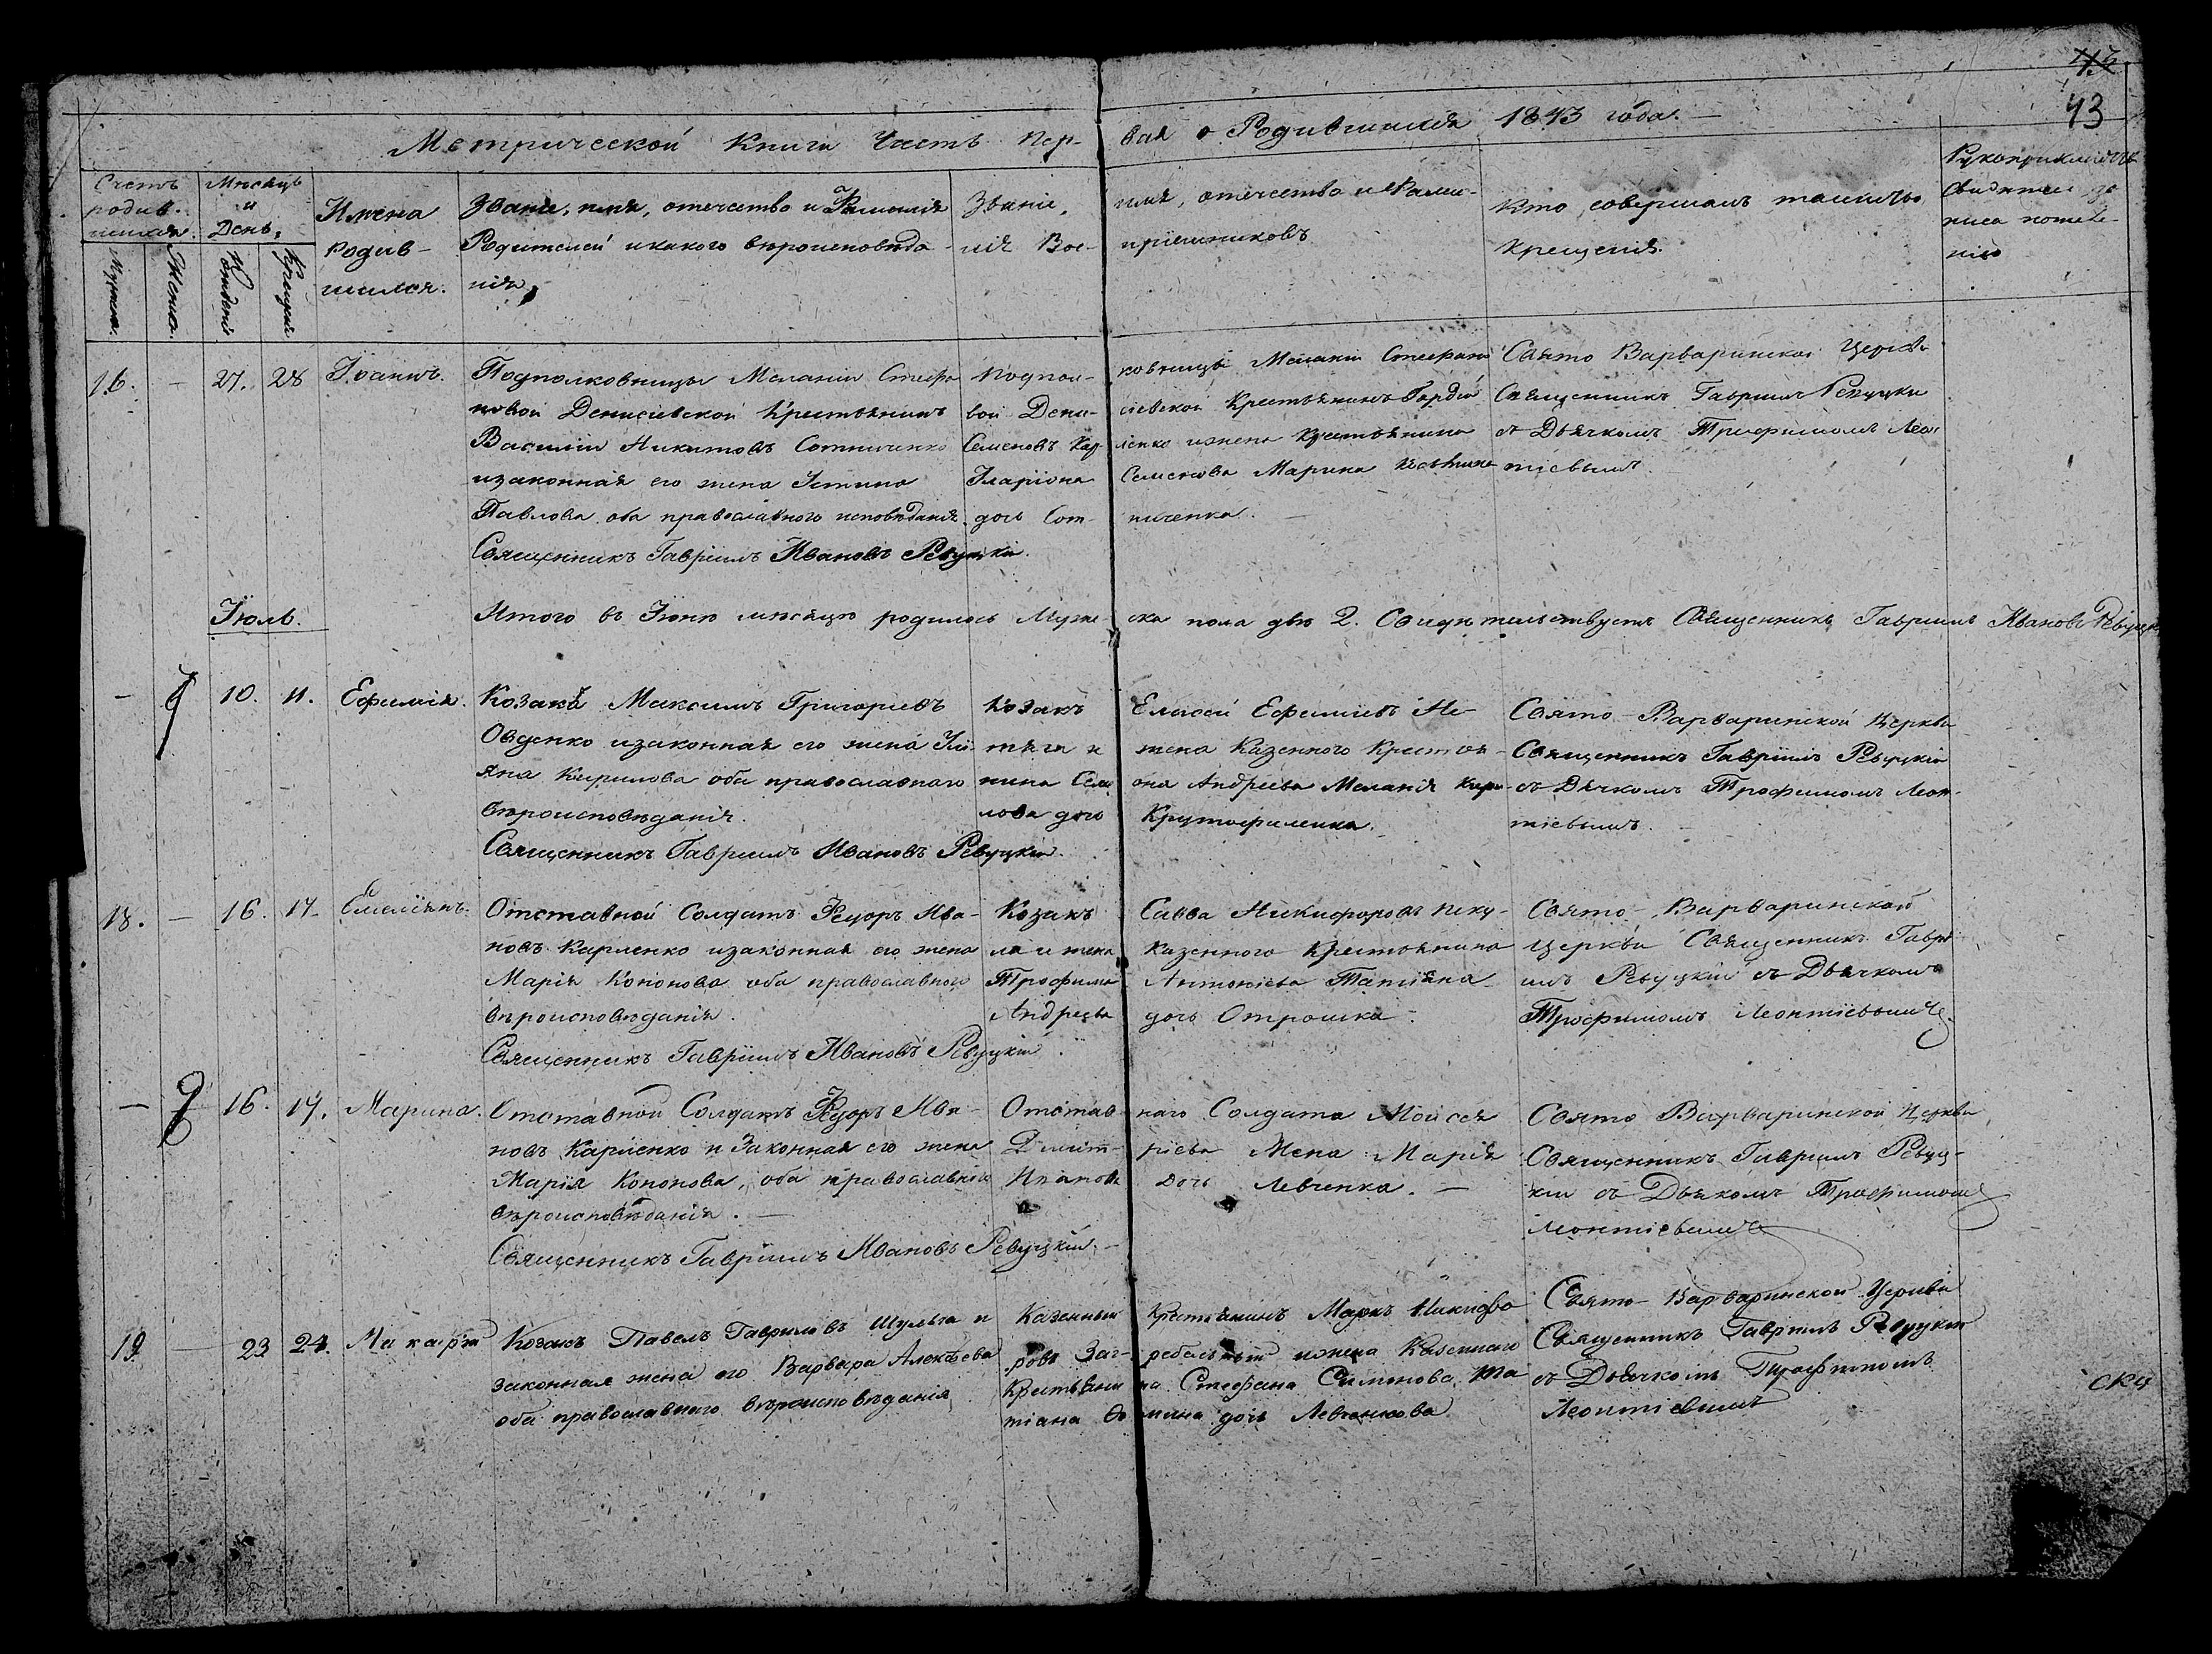 43
43
Метрической Книги Часть Пер- вая о Родившихся 1843 года.
Счетъ родив- шихся.
Мѣсяцъ и День.
Мужска.
Женска.
Рожденія
Крещенія
Имена родив- шихся.
Званіе, имя, отечество и Фамилія
Родителей и какого вѣроисповѣда-
нія.
Званіе, имя, отечество и Фами-
лія Вос- пріемниковъ
Кто совершалъ таинство
Крещенія.
Рукоприкладство
свидѣтелей
писа по желе-
нію
16. - 27. 28 Іоаннъ.
Подполковницы Меланіи Стефа
новой Денисіевской Крестьянинъ
Василій Никитовъ Сотниченко
изаконная его жена Устина
Павлова оба православнаго исповѣданія.
Священникъ Гавріилъ Ивановъ Ревуцкій.
Подпол- ковницы Меланіи Стефано
вой Дени- сіевской Крестьянинъ Гордій
Семеновъ Кар- ленко ижена Крестьянина
Іларіона Семенова Марина
дочь Сот- ниченка.
Свято Варваринской Церкви
Священникъ Гавріилъ Ревуцкій
съ Дьячкомъ Трофимомъ Леон
тіевымъ.
Итого въ Іюнѣ мѣсяцѣ родилось Муже- ска пола два 2. Свидѣтельствуетъ Священникъ Гавріилъ Ивановъ Ревуцкій
Іюль.
- 10. 11. Ефимія.
Козакъ Максимъ Григоріевъ
Овденко изаконная его жена Ули
яна Кирилова оба православнаго
вѣроисповѣданія.
Священникъ Гавріилъ Ивановъ Ревуцкій.
Козакъ Елисей Ефиміевъ Не-
тяга и жена Казенного Крестья-
нина Сем она Андреева Меланія Кири-
лова дочь Крутофиленка.
Свято-Варваринской Церкви
Священникъ Гавріилъ Ревуцкій
съ Дячкомъ Трофимомъ Леон-
тіевымъ.
18. - 16. 17. Емеліянъ.
Отставной Солдатъ Федоръ Ива-
новъ Карпенко изаконная его жена
Марія Кононова оба православного
вѣроисповѣданія.
Священникъ Гавріилъ Ивановъ Ревуцкій.
Козакъ Савва Никифоровъ Пеку-
ла и жена Казенного Крестьянина
Трофима Антоніева Татіяна
Андреева дочь Отрошка.
Свято-Варваринской
Церкви Священникъ Гаврі
илъ Ревуцкій съ Дьячкомъ
Трофимомъ Леонтіевымъ.
- 16. 17. Марина.
Отставной Солдатъ Федоръ Ива-
новъ Карпенко и Законная его жена
Марія Кононова, оба православнаго
вѣроисповѣданія.
Священникъ Гавріилъ Ивановъ Ревуцкій.
Отстав- наго Солдата Моисея
Дмит- ріева Жена Марія
Иванова дочь Левченка.
Свято Варваринской Церкви
Священникъ Гавріилъ Ревуц-
кій съ Дьякомъ Трофимомъ
Леонтіевымъ
19 - 23 24. Макарій
Козакъ Павелъ Гавриловъ Шульга и
законная жена его Варвара Алексѣева
оба православнаго вѣроисповѣданія
Казенный Крестьянинъ Маркъ Никифо
ровъ Заг- ребельный ижена Казеннаго
Крестьяни на Стефана Симонова Та
тіана Ѳо мина дочь Левченкова
Свято-Варваринской Церкви
Священникъ Гавріилъ Ревуцкій
съ Дьячкомъ Трофимомъ
Леонтіевымъ